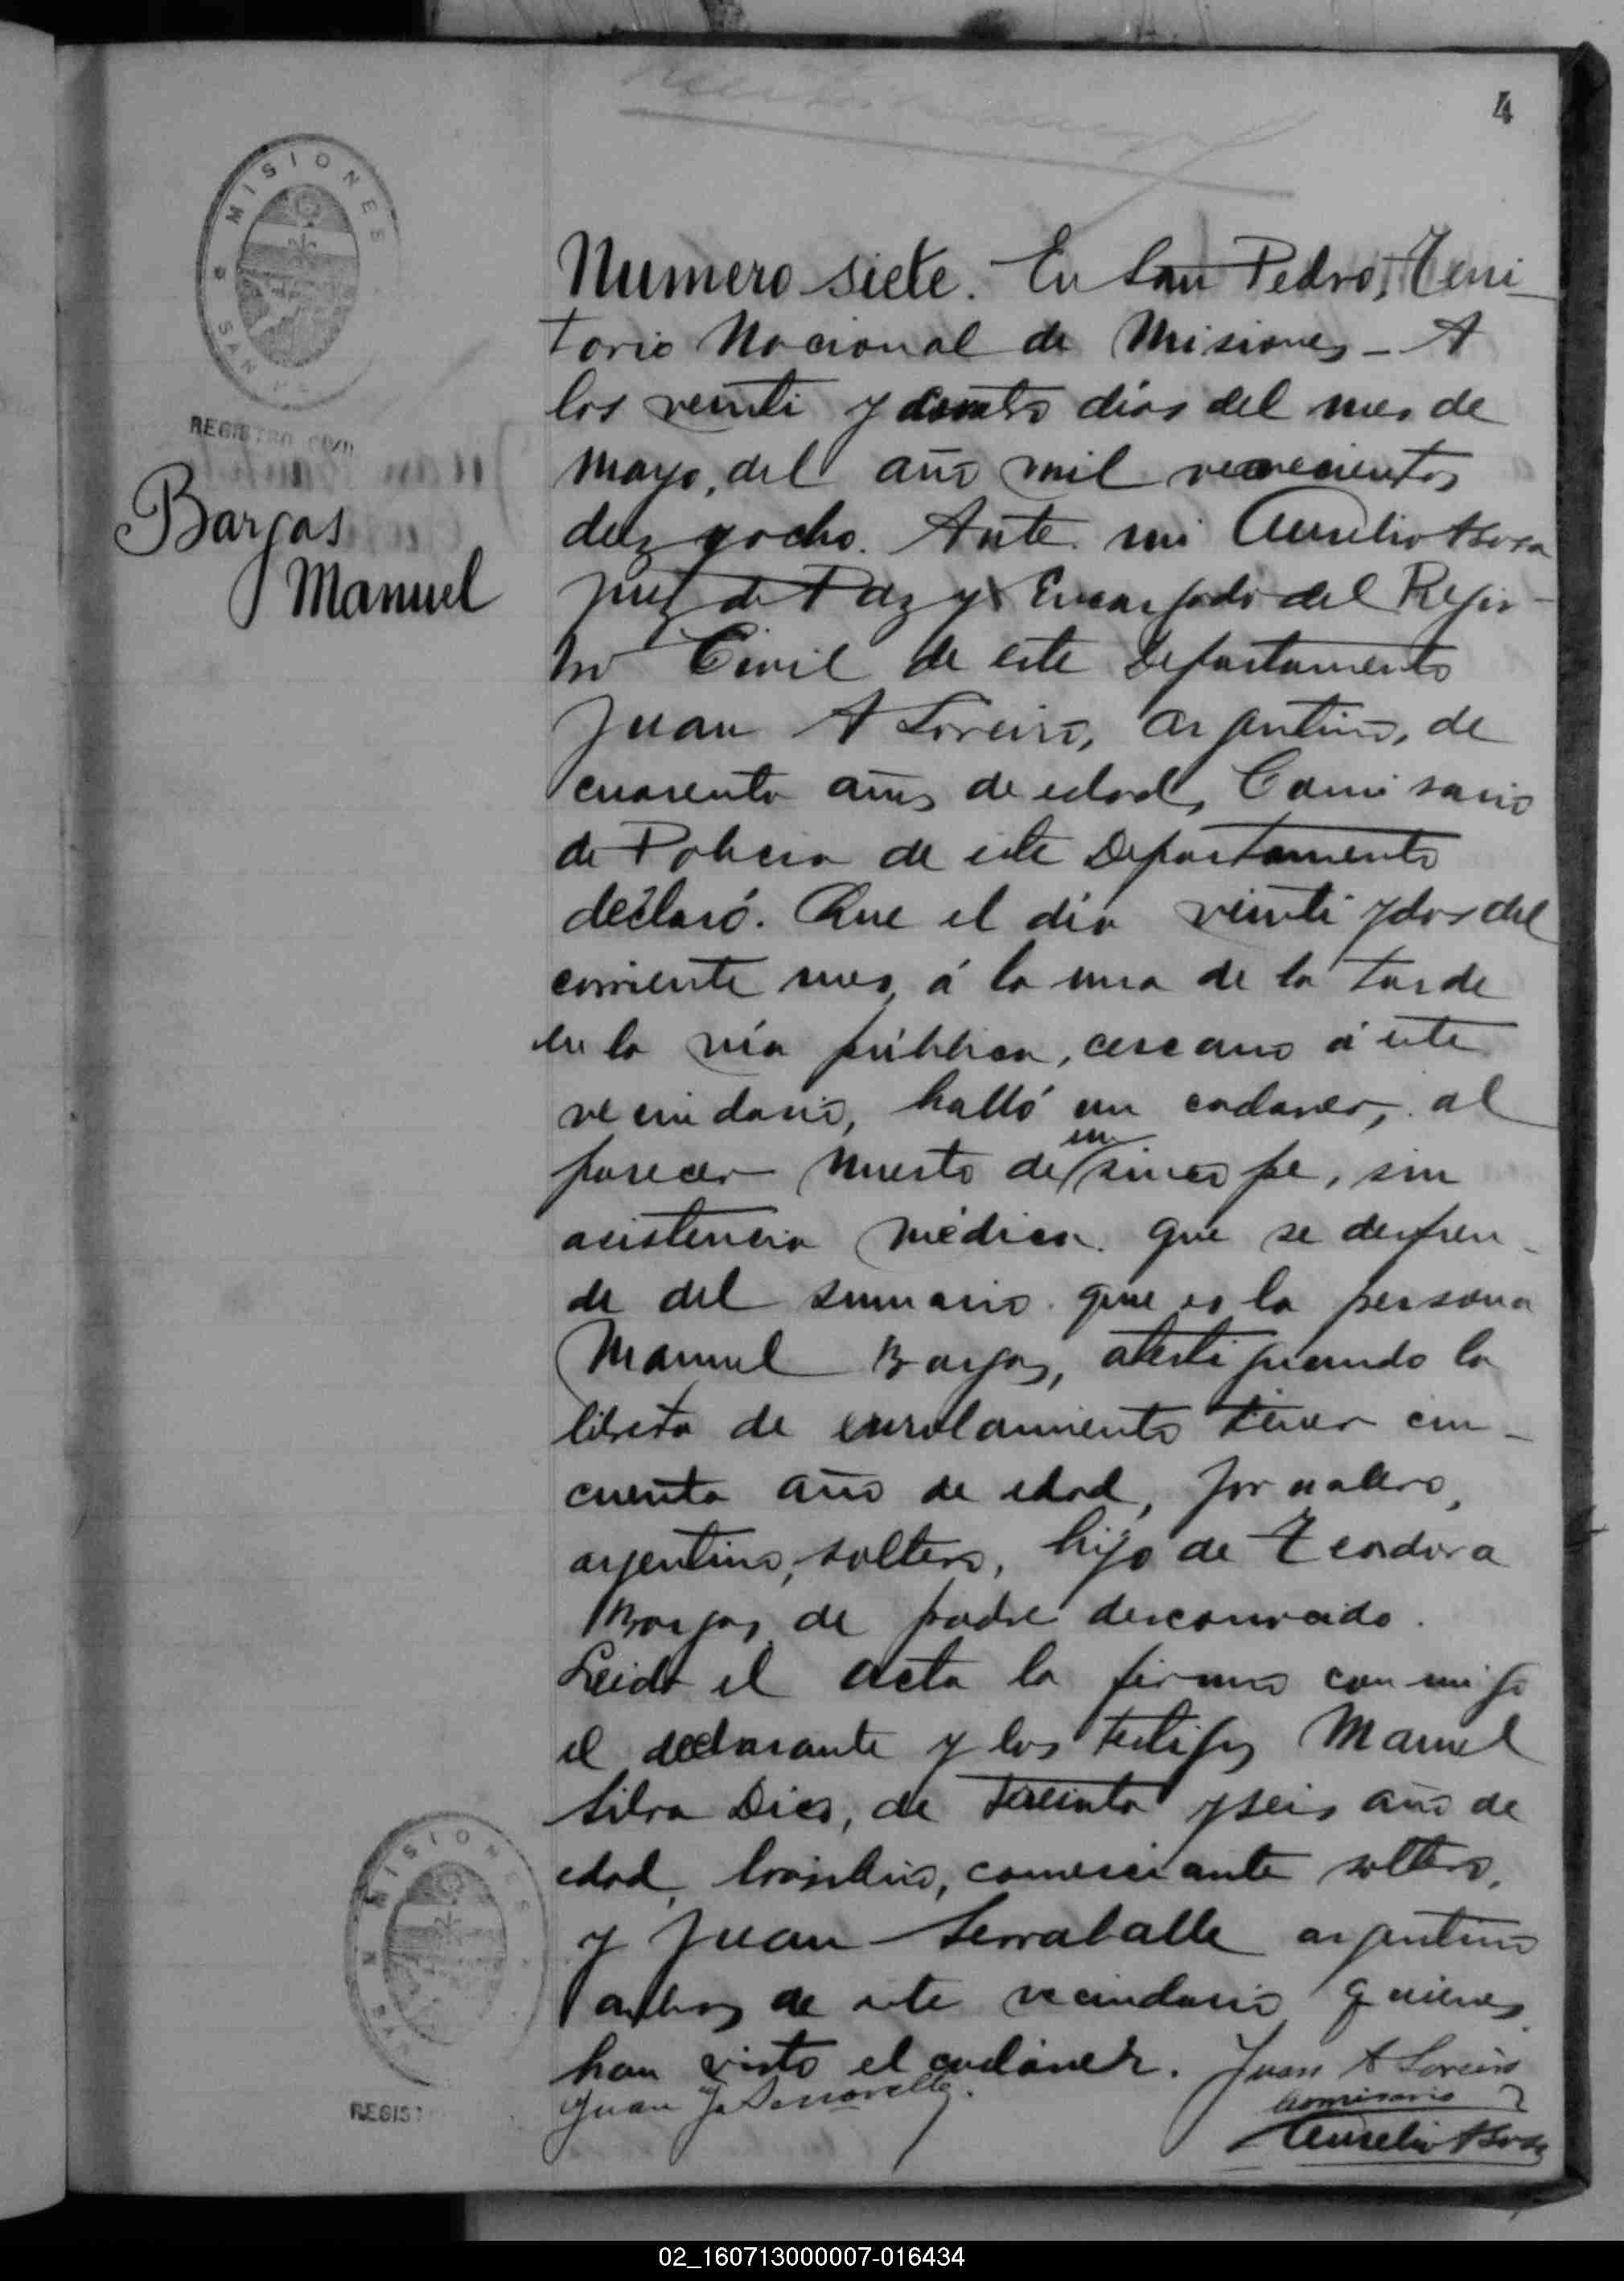 4
MISIONES
SAN
REGISTRO CIVIL
Bargas
Manuel
Numero siete. En San Pedro, Terri-
torio Nacional de Misiones - A
los veinti y dias del mes de
mayo, del año mil novecientos
diez y ocho. Ante mi Aurelio
juez de Paz y Encargado del Regis-
tro Civil de este Departamento
Juan A Loreiro, argentino, de
cuarenta años de edad, Comisario
de Policia de este Departamento
declaró. Que el día veinti y dos del
corriente mes, á la una de la tarde
en la vía pública, cercano á este
vecindario, halló un cadaver, al
parecer muerto de un sincope, sin
asistencia médica. que se despren-
de del sumario. que es la persona
Manuel Bargas, atestiguando la
libreta de enrolamiento tener cin-
cuenta año de edad, jornalero,
argentino, soltero, hijo de Teodora
Bargas, de padre desconocido.
Leida el acta la firma con migo
el declarante y los testigos Manuel
Silva Dico, de treinta y seis año de
edad, brasilero, comerciante soltero,
y Juan Serraballe argentino
ambos de este vecindario quienes
han visto el cadáver. Juan A Loreiro
Juan
Comisario
Aurelio
MISIONES
SAN
REGIST
02_160713000007-016434